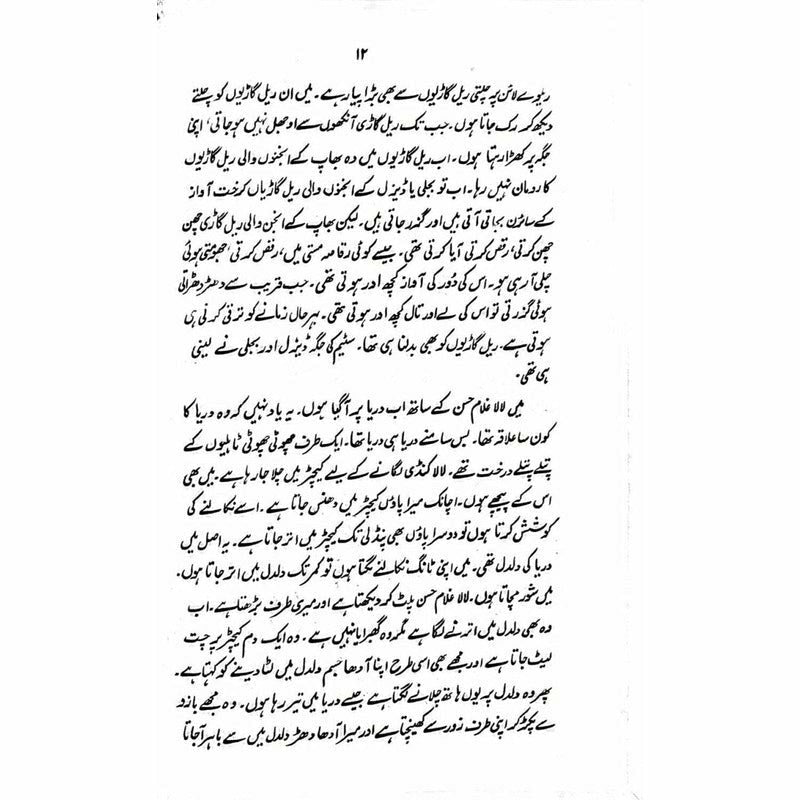 ۱۲
ریلوے لائن پہ چلتی ریل گاڑیوں سے بھی بڑا پیار ہے۔ میں ان ریل گاڑیوں کو چلتے
دیکھ کر رک جاتا ہوں۔ جب تک ریل گاڑی آنکھوں سے اوجھل نہیں ہو جاتی، اپنی
جگہ پر کھڑا رہتا ہوں۔ اب ریل گاڑیوں میں وہ بھاپ کے انجنوں والی ریل گاڑیوں
کا رومان نہیں رہا۔ اب تو بجلی یا ڈیزل کے انجنوں والی ریل گاڑیاں کرخت آواز
کے سائرن بجاتی آتی ہیں اور گذر جاتی ہیں۔ لیکن بھاپ کے انجن والی ریل گاڑی چھن
چھن کرتی، رقص کرتی آیا کرتی تھی۔ جیسے کوئی رقاصہ مستی میں، رقص کرتی، جھومتی ہوئی
چلی آ رہی ہو۔ اس کی دُور کی آواز کچھ اور ہوتی تھی۔ جب قریب سے دھڑدھڑاتی
ہوئی گزرتی تو اس کی لے اور تال کچھ اور ہوتی تھی۔ بہر حال زمانے کو ترقی کرنی ہی
ہوتی ہے۔ ریل گاڑیوں کو بھی بدلنا ہی تھا۔ سٹیم کی جگہ ڈیزل اور بجلی نے لینی
ہی تھی۔
میں لالا غلام حسن کے ساتھ اب دریا پر آ گیا ہوں۔ یہ یاد نہیں کہ وہ دریا کا
کون سا علاقہ تھا۔ بس سامنے دریا ہی دریا تھا۔ ایک طرف چھوٹی چھوٹی ٹاہلیوں کے
پتلے پتلے درخت تھے۔ لالا کنڈی لگانے کے لیے کیچڑ میں چلا جا رہا ہے۔ میں بھی
اس کے پیچھے ہوں۔ اچانک میرا پاؤں کیچڑ میں دھنس جاتا ہے۔ اسے نکالنے کی
کوشش کرتا ہوں تو دوسرا پاؤں بھی پنڈلی تک کیچڑ میں اتر جاتا ہے۔ یہ اصل میں
دریا کی دلدل تھی۔ میں اپنی ٹانگ نکالنے لگتا ہوں تو کمر تک دلدل میں اتر جاتا ہوں۔
میں شور مچاتا ہوں۔ لالا غلام حسن پلٹ کر دیکھتا ہے اور میری طرف بڑھتا ہے۔ اب
وہ بھی دلدل میں اترنے لگا ہے مگر وہ گھبرایا نہیں ہے۔ وہ ایک دم کیچڑ پر چت
لیٹ جاتا ہے اور مجھے بھی اسی طرح اپنا آدھا جسم دلدل میں لٹا دینے کو کہتا ہے۔
پھر وہ دلدل پہ یوں ہاتھ چلانے لگتا ہے جیسے دریا میں تیر رہا ہوں۔ وہ مجھے بازو
سے پکڑ کر اپنی طرف زور سے کھینچتا ہے اور میرا آدھا دھڑ دلدل میں سے باہر آ جاتا